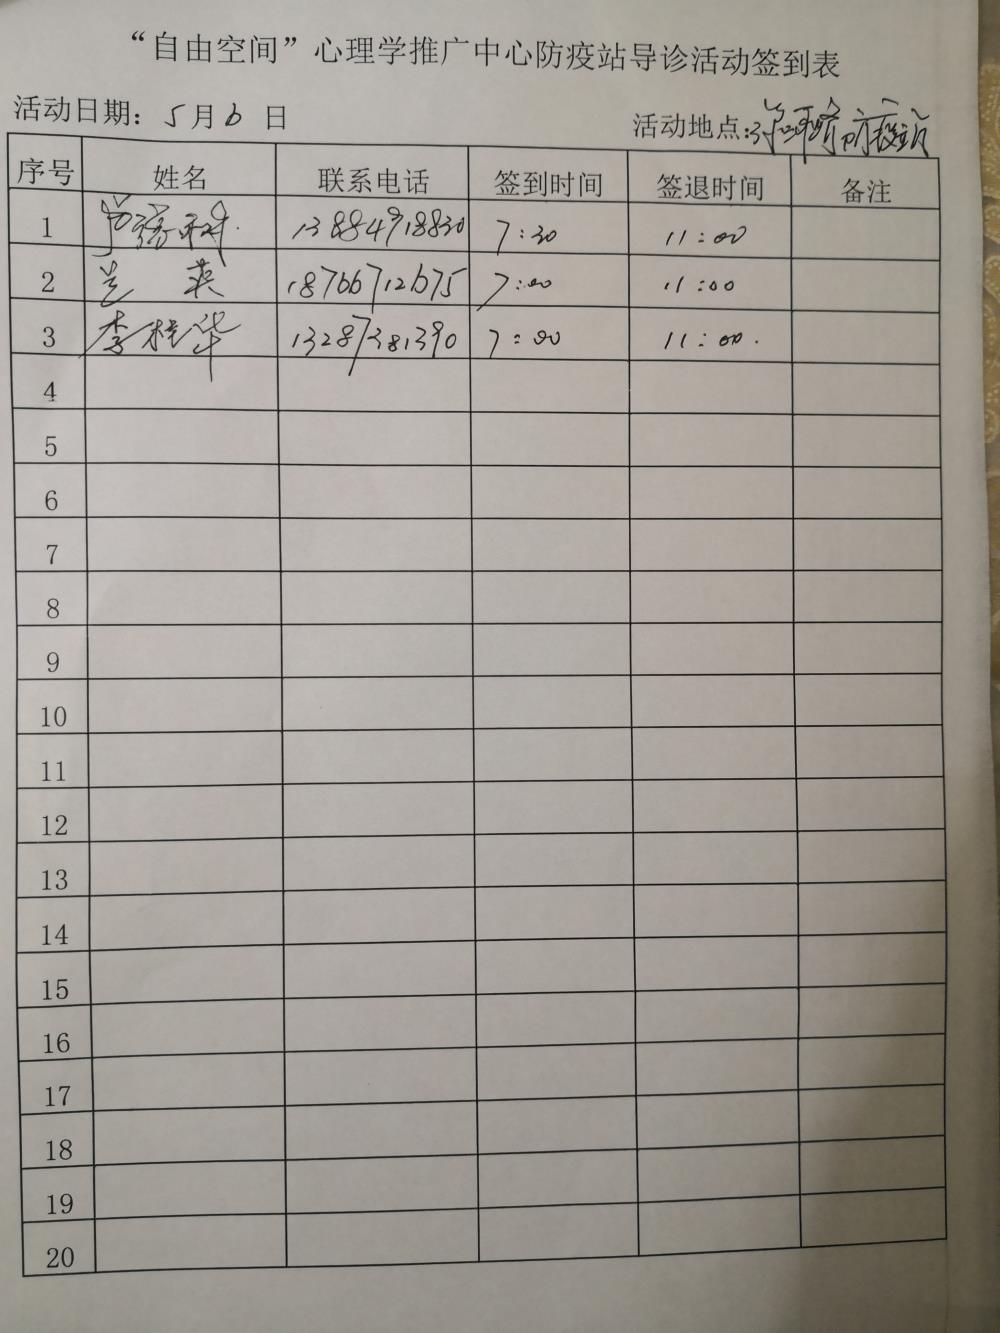 “自由空间”心理学推广中心防疫站导诊活动签到表
活动日期: 5月6日 活动地点: 防疫站
序号 姓名 联系电话 签到时间 签退时间 备注
1 13884918830 7:30 11:00
2 兰英 18766712675 7:00 11:00
3 李桂华 13287381390 7:00 11:00.
4
5
6
7
8
9
10
11
12
13
14
15
16
17
18
19
20